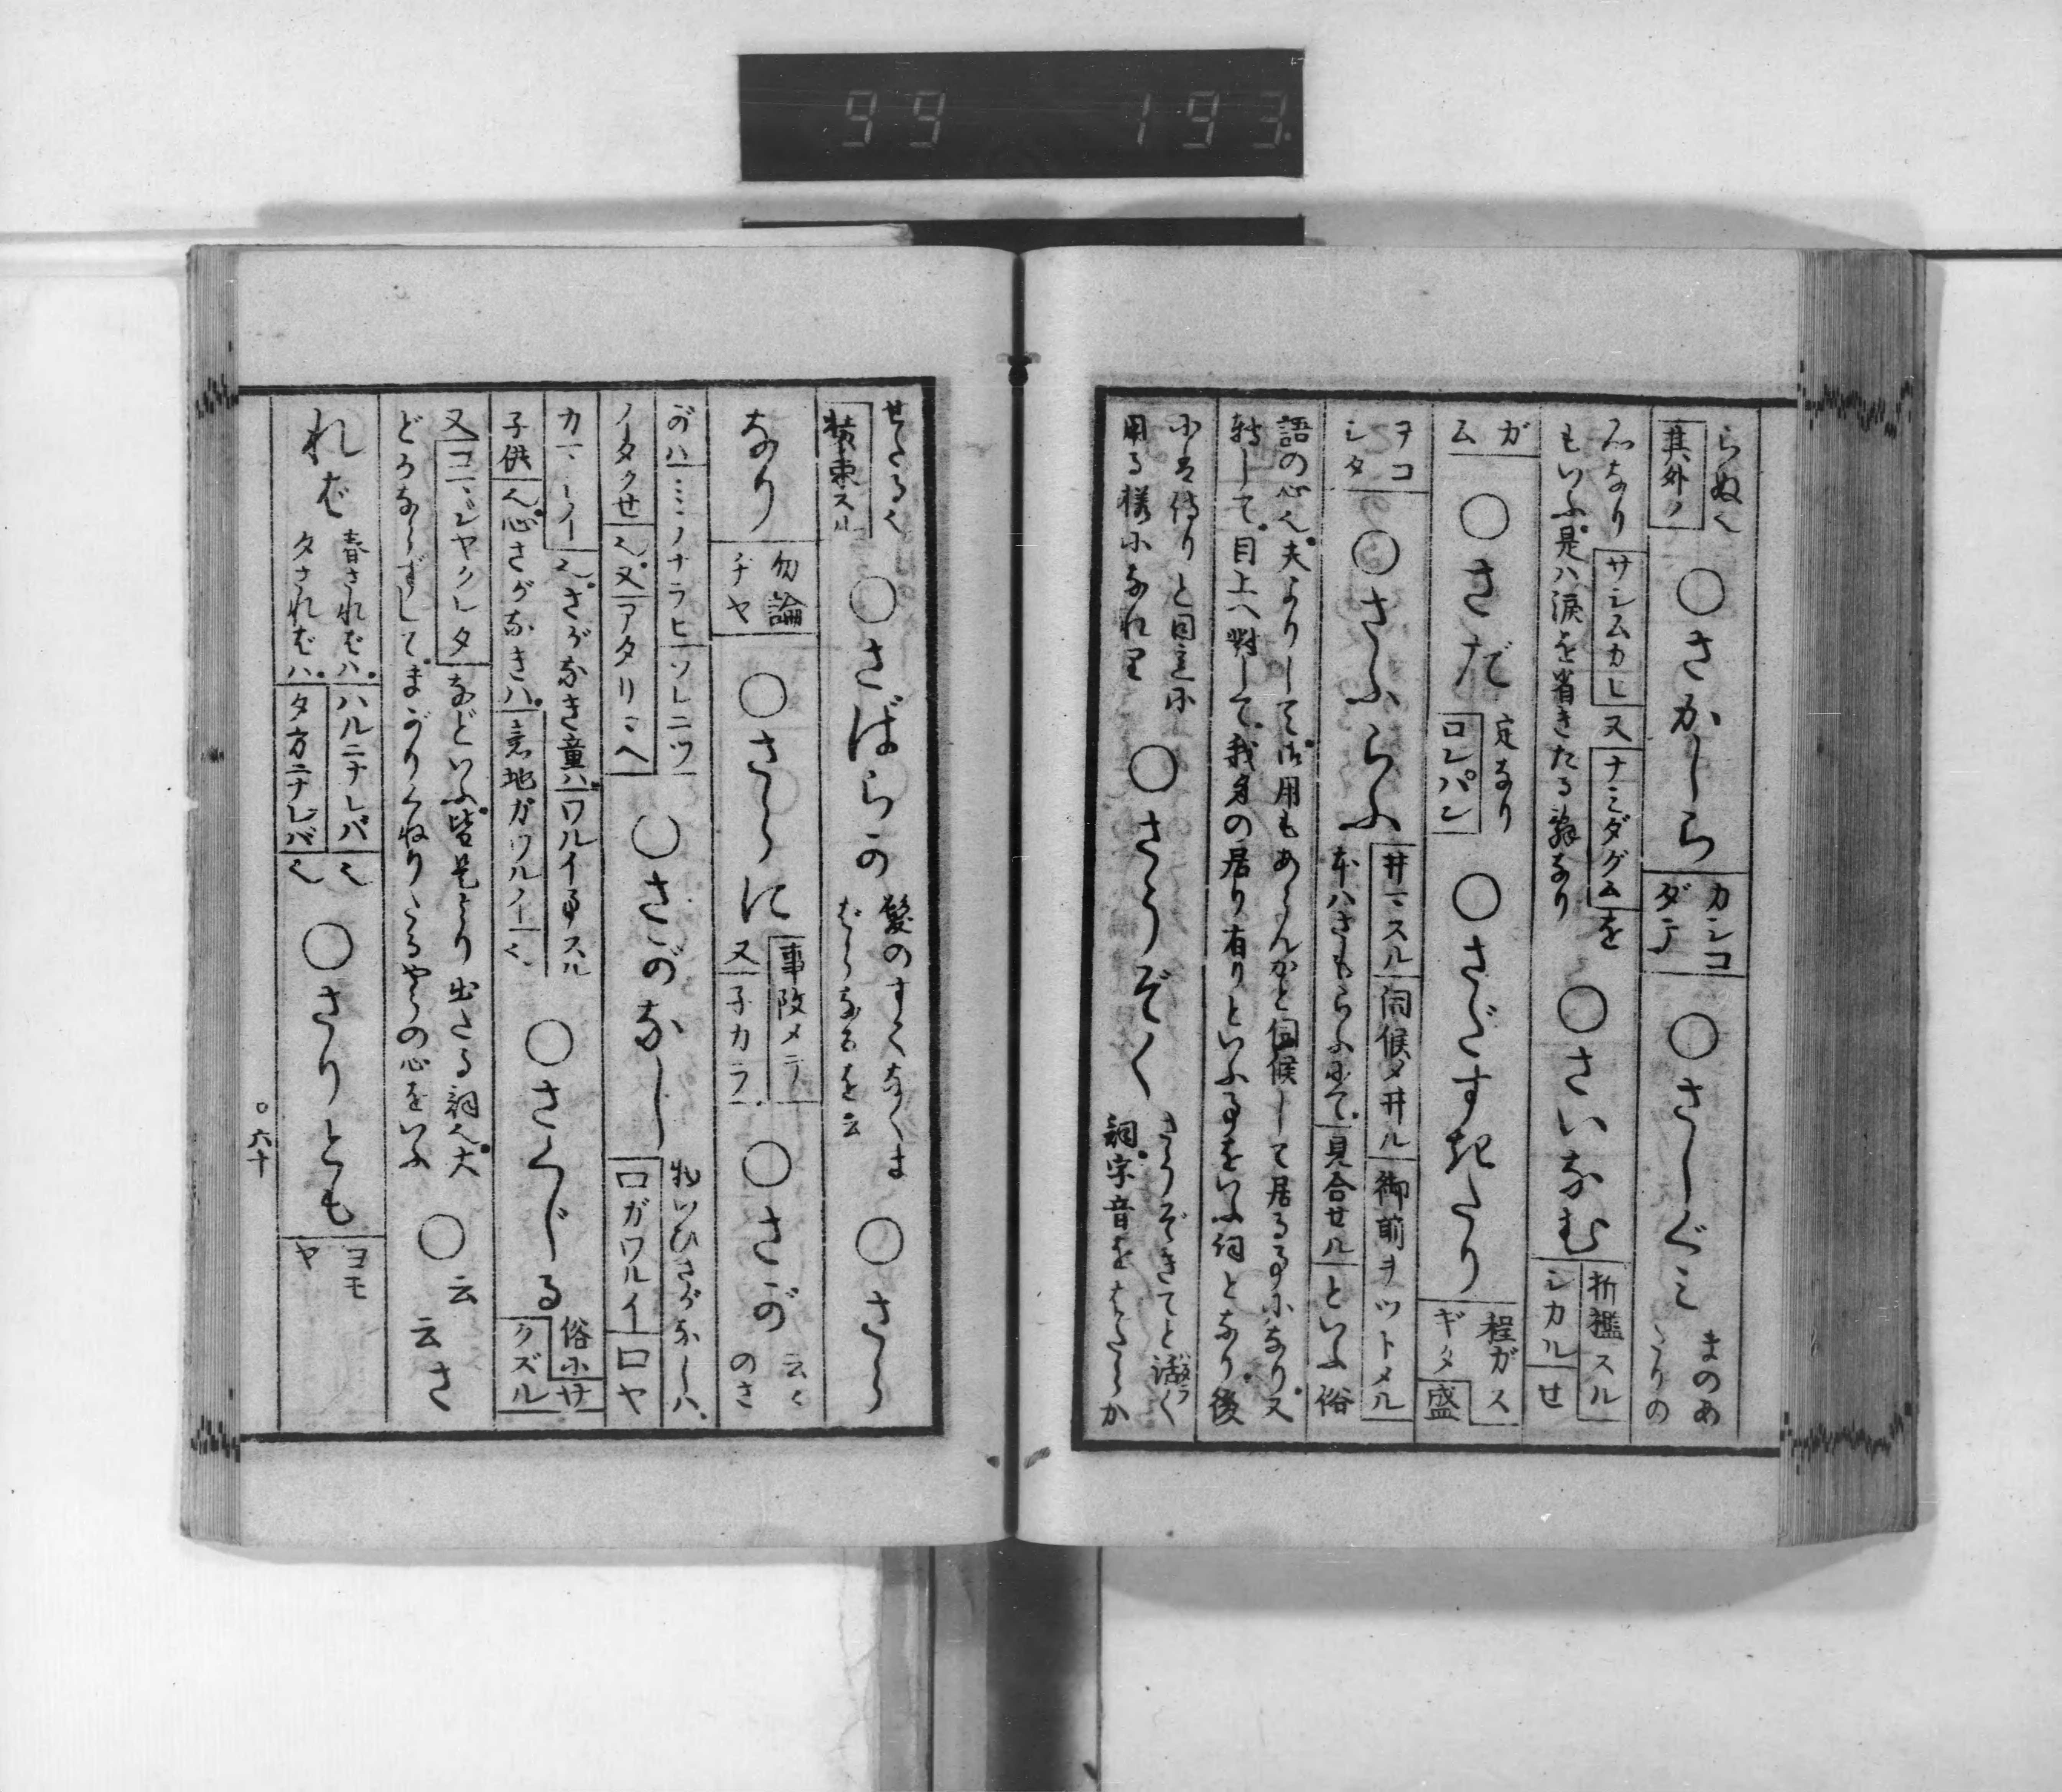 99 193
らぬく
其外ノ
○さかしら
カシコ
ダテ
○さしぐミ
まのあ
たりの
るなり サシムカヒ 又 ナミダグム を
もいふ是ハ涙を省きたる辞なり
○さいなむ
折檻スル
シカル せ
ガ
ム
○さだ
定なり
ロレパン
○さだすぎたり
程ガス
ギタ 盛
ヲコ
シタ
○さふらふ
井マスル 伺候メ井ル 御前ヲツトメル
本ハさもらふにて 見合セル といふ俗
語の心く夫よりして御用もあらんかと伺候して居る事になり又
転して目上へ対して我身の居り有りといふ事をいふ詞となり後
小は侍りと同意に
用る様になれり
○さうぞく
さうぞきてと活く
詞字音をはたらか
せたるく
装束スル
○さばらかの
髪のすくなくま
ばらなるを云
○さら
なり
勿論
ヂヤ
○さらに
事改メテ
又 子カラ
○さが
云く
のさ
がハ ミミノナラヒ ソレニツ
ノタクセ く又 アタリマヘ
○さがなし
物いひさがなしハ
口ガワルイ 口ヤ
カマシイ くさがなき童ハ ワルイ事スル
子供 く心さがなきハ 意地ガワルイ く
○さくじる
俗に サ
クズル
又 コマシヤクレタ などいふ皆是より出たる詞く大
どかならずしてまがりくねりたるやうの心をいふ
○云
云 さ
れば
春さればハ ハルニナレバ く
夕さればハ 夕方ニナレバ く
○さりとも
ヨモ
ヤ
○六十